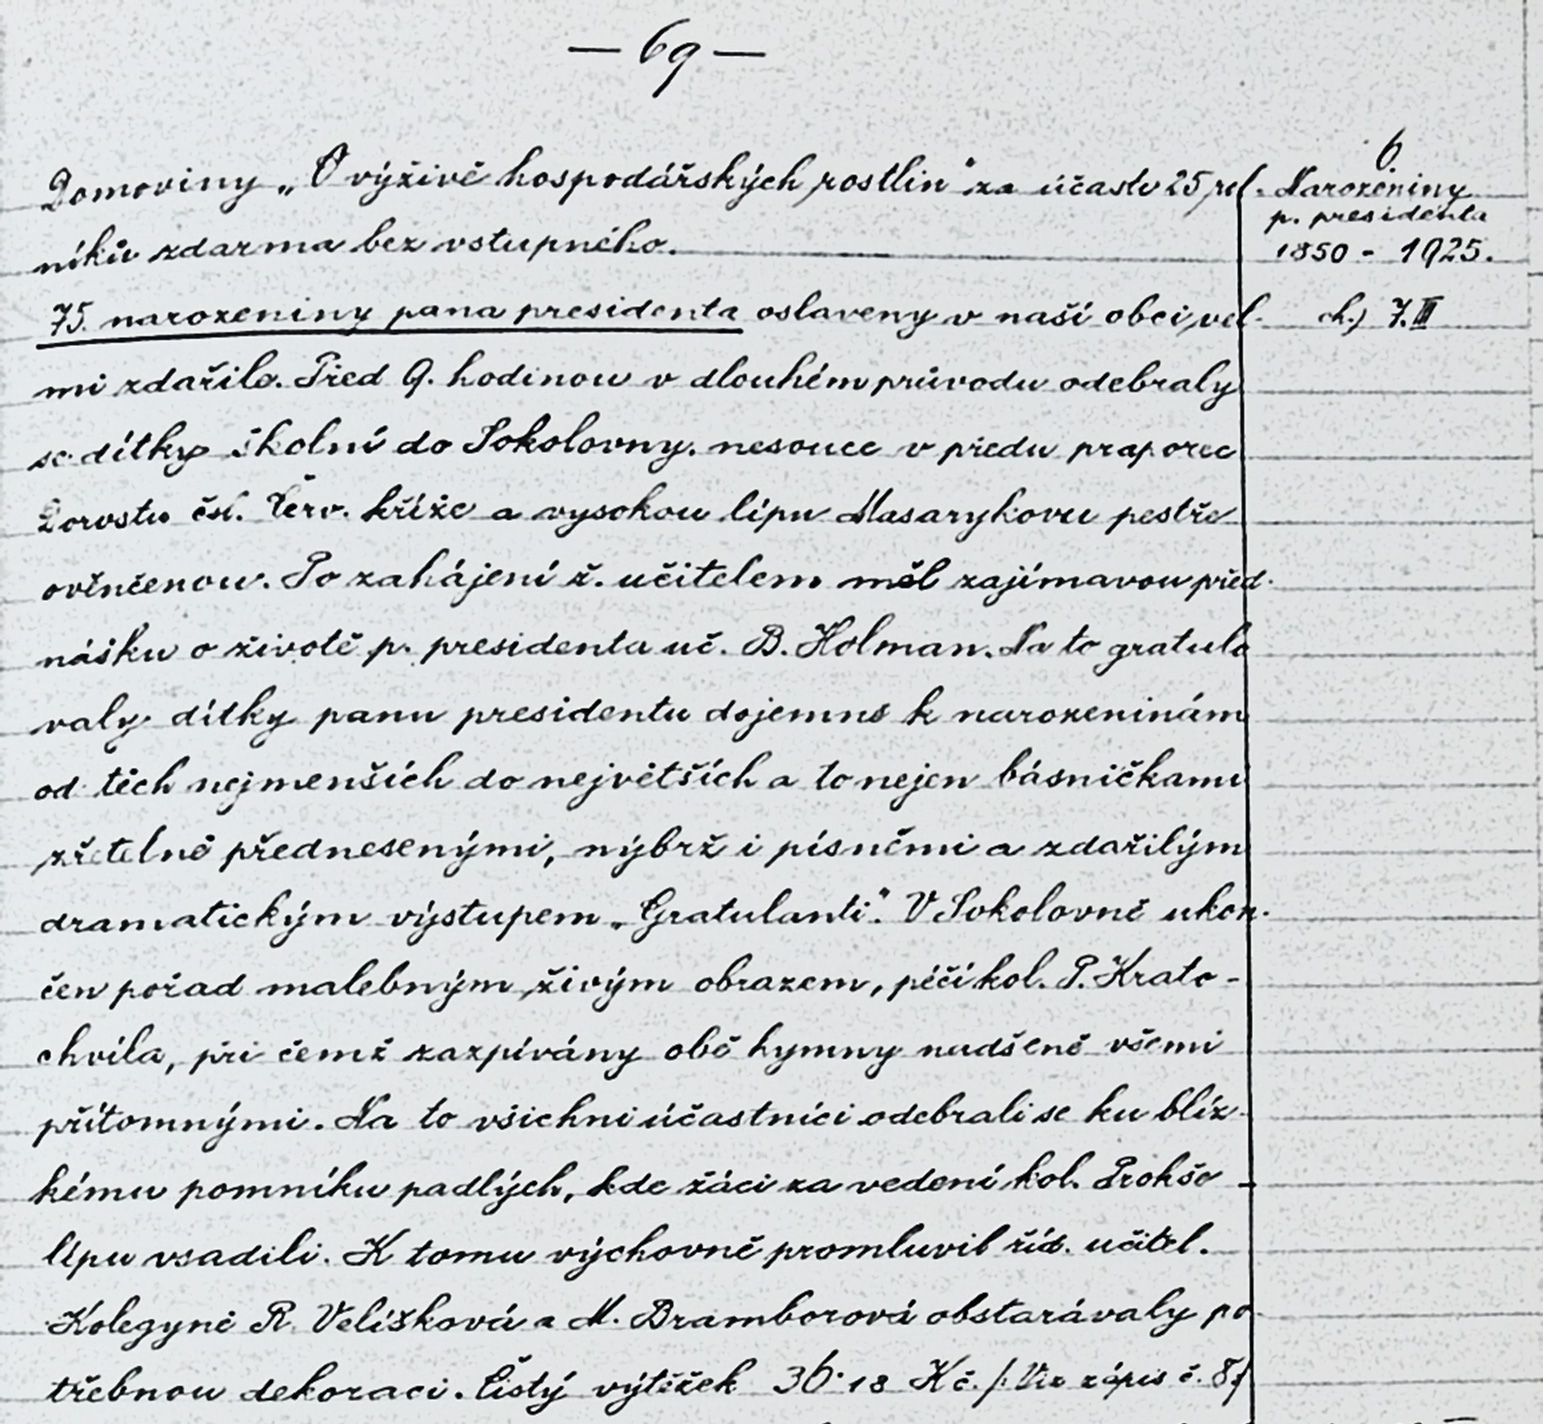 — 69 —
Domoviny „O výživě hospodářských rostlin" za účasti 25 rol-
níků zdarma bez vstupného.
75. narozeniny pana presidenta oslaveny v naší obci vel-
mi zdařile. Před 9. hodinou v dlouhém průvodu odebraly
se dítky školní do Sokolovny, nesouce v předu praporec
Dorostu čsl. Červ. kříže a vysokou lípu Masarykovu pestře
ověnčenou. Po zahájení ř. učitelem měl zajímavou před-
nášku o životě p. presidenta uč. B. Holman. Na to gratulo
valy dítky panu presidentu dojemně k narozeninám
od těch nejmenších do největších a to nejen básničkami
zřetelně přednesenými, nýbrž i písněmi a zdařilým
dramatickým výstupem „Gratulanti". V Sokolovně ukon-
čen pořad malebným živým obrazem, péčí kol. P. Krato-
chvíla, při čemž zazpívány obě hymny nadšeně všemi
přítomnými. Na to všichni účastníci odebrali se ku blíz-
kému pomníku padlých, kde žáci za vedení kol. Prokšo
lípu vsadili. K tomu výchovně promluvil říd. učitel.
Kolegyně R. Velíšková a M. Bramborová obstarávaly po-
třebnou dekoraci. Čistý výtěžek 36·18 Kč. /: Viz zápis č. 8:/
6.
Narozeniny
p. presidenta
1850 - 1925.
ch.) 7.III